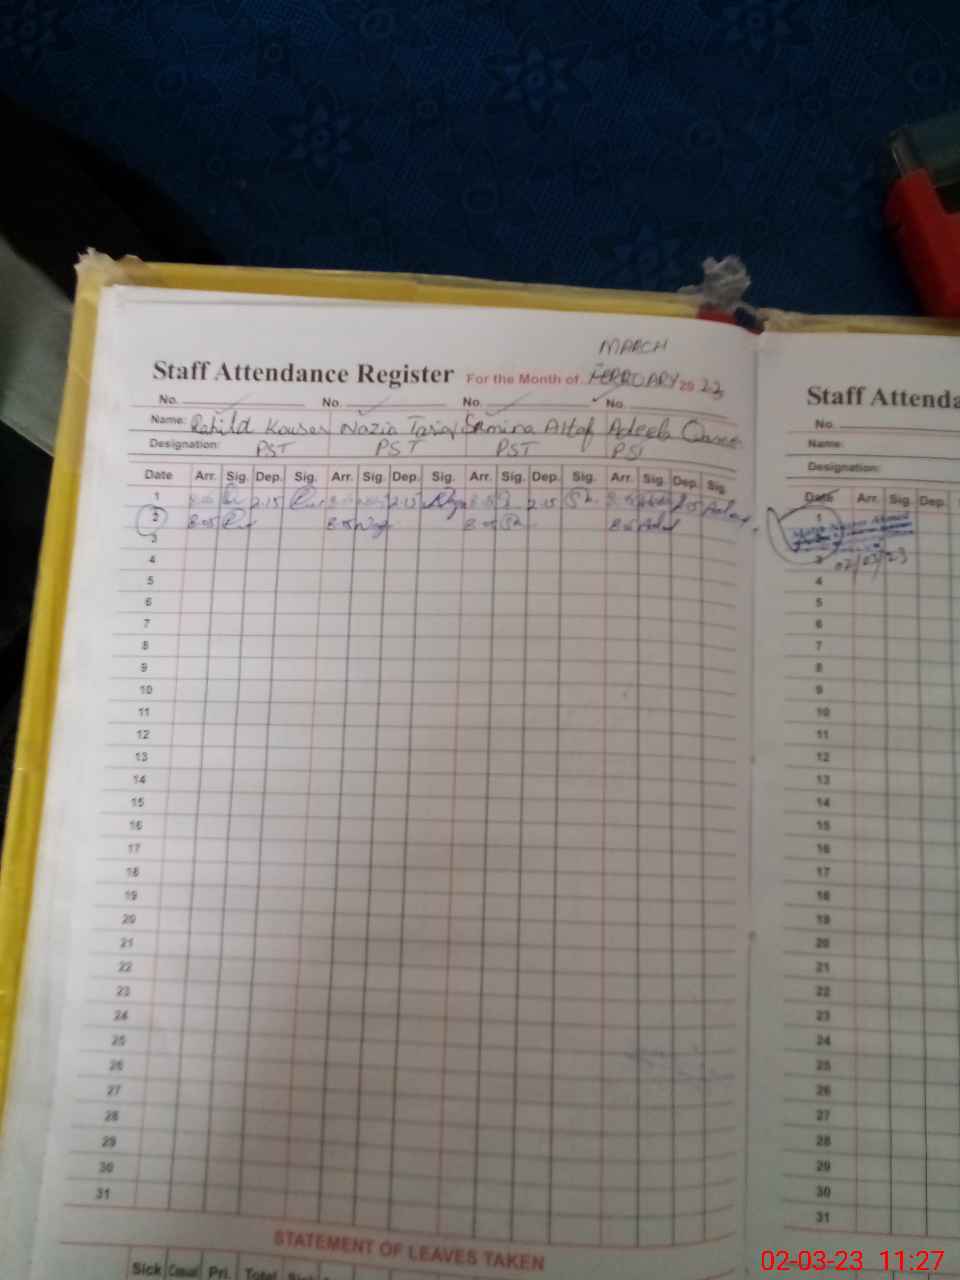 MARCH
Staff Attendance Register For the Month of FEBRUARY 2023
No. No. No. No.
Name: Kouser Nazia Samina Altaf Adeeba
Designation: PST PST PST PST
Date Arr. Sig. Dep. Sig. Arr. Sig. Dep. Sig. Arr. Sig. Dep. Sig. Arr. Sig. Dep. Sig.
1 2.15 2.15 2.15
2 8.05 8.05 8.05 8.05
3
4
5
6
7
8
9
10
11
12
13
14
15
16
17
18
19
20
21
22
23
24
25
26
27
28
29
30
31
STATEMENT OF LEAVES TAKEN
Sick Casual Pri. Total Sick
Staff Attenda
No.
Name:
Designation:
Date Arr. Sig. Dep.
1
3 02/03/23
4
5
6
7
8
9
10
11
12
13
14
15
16
17
18
19
20
21
22
23
24
25
26
27
28
29
30
31
02-03-23 11:27